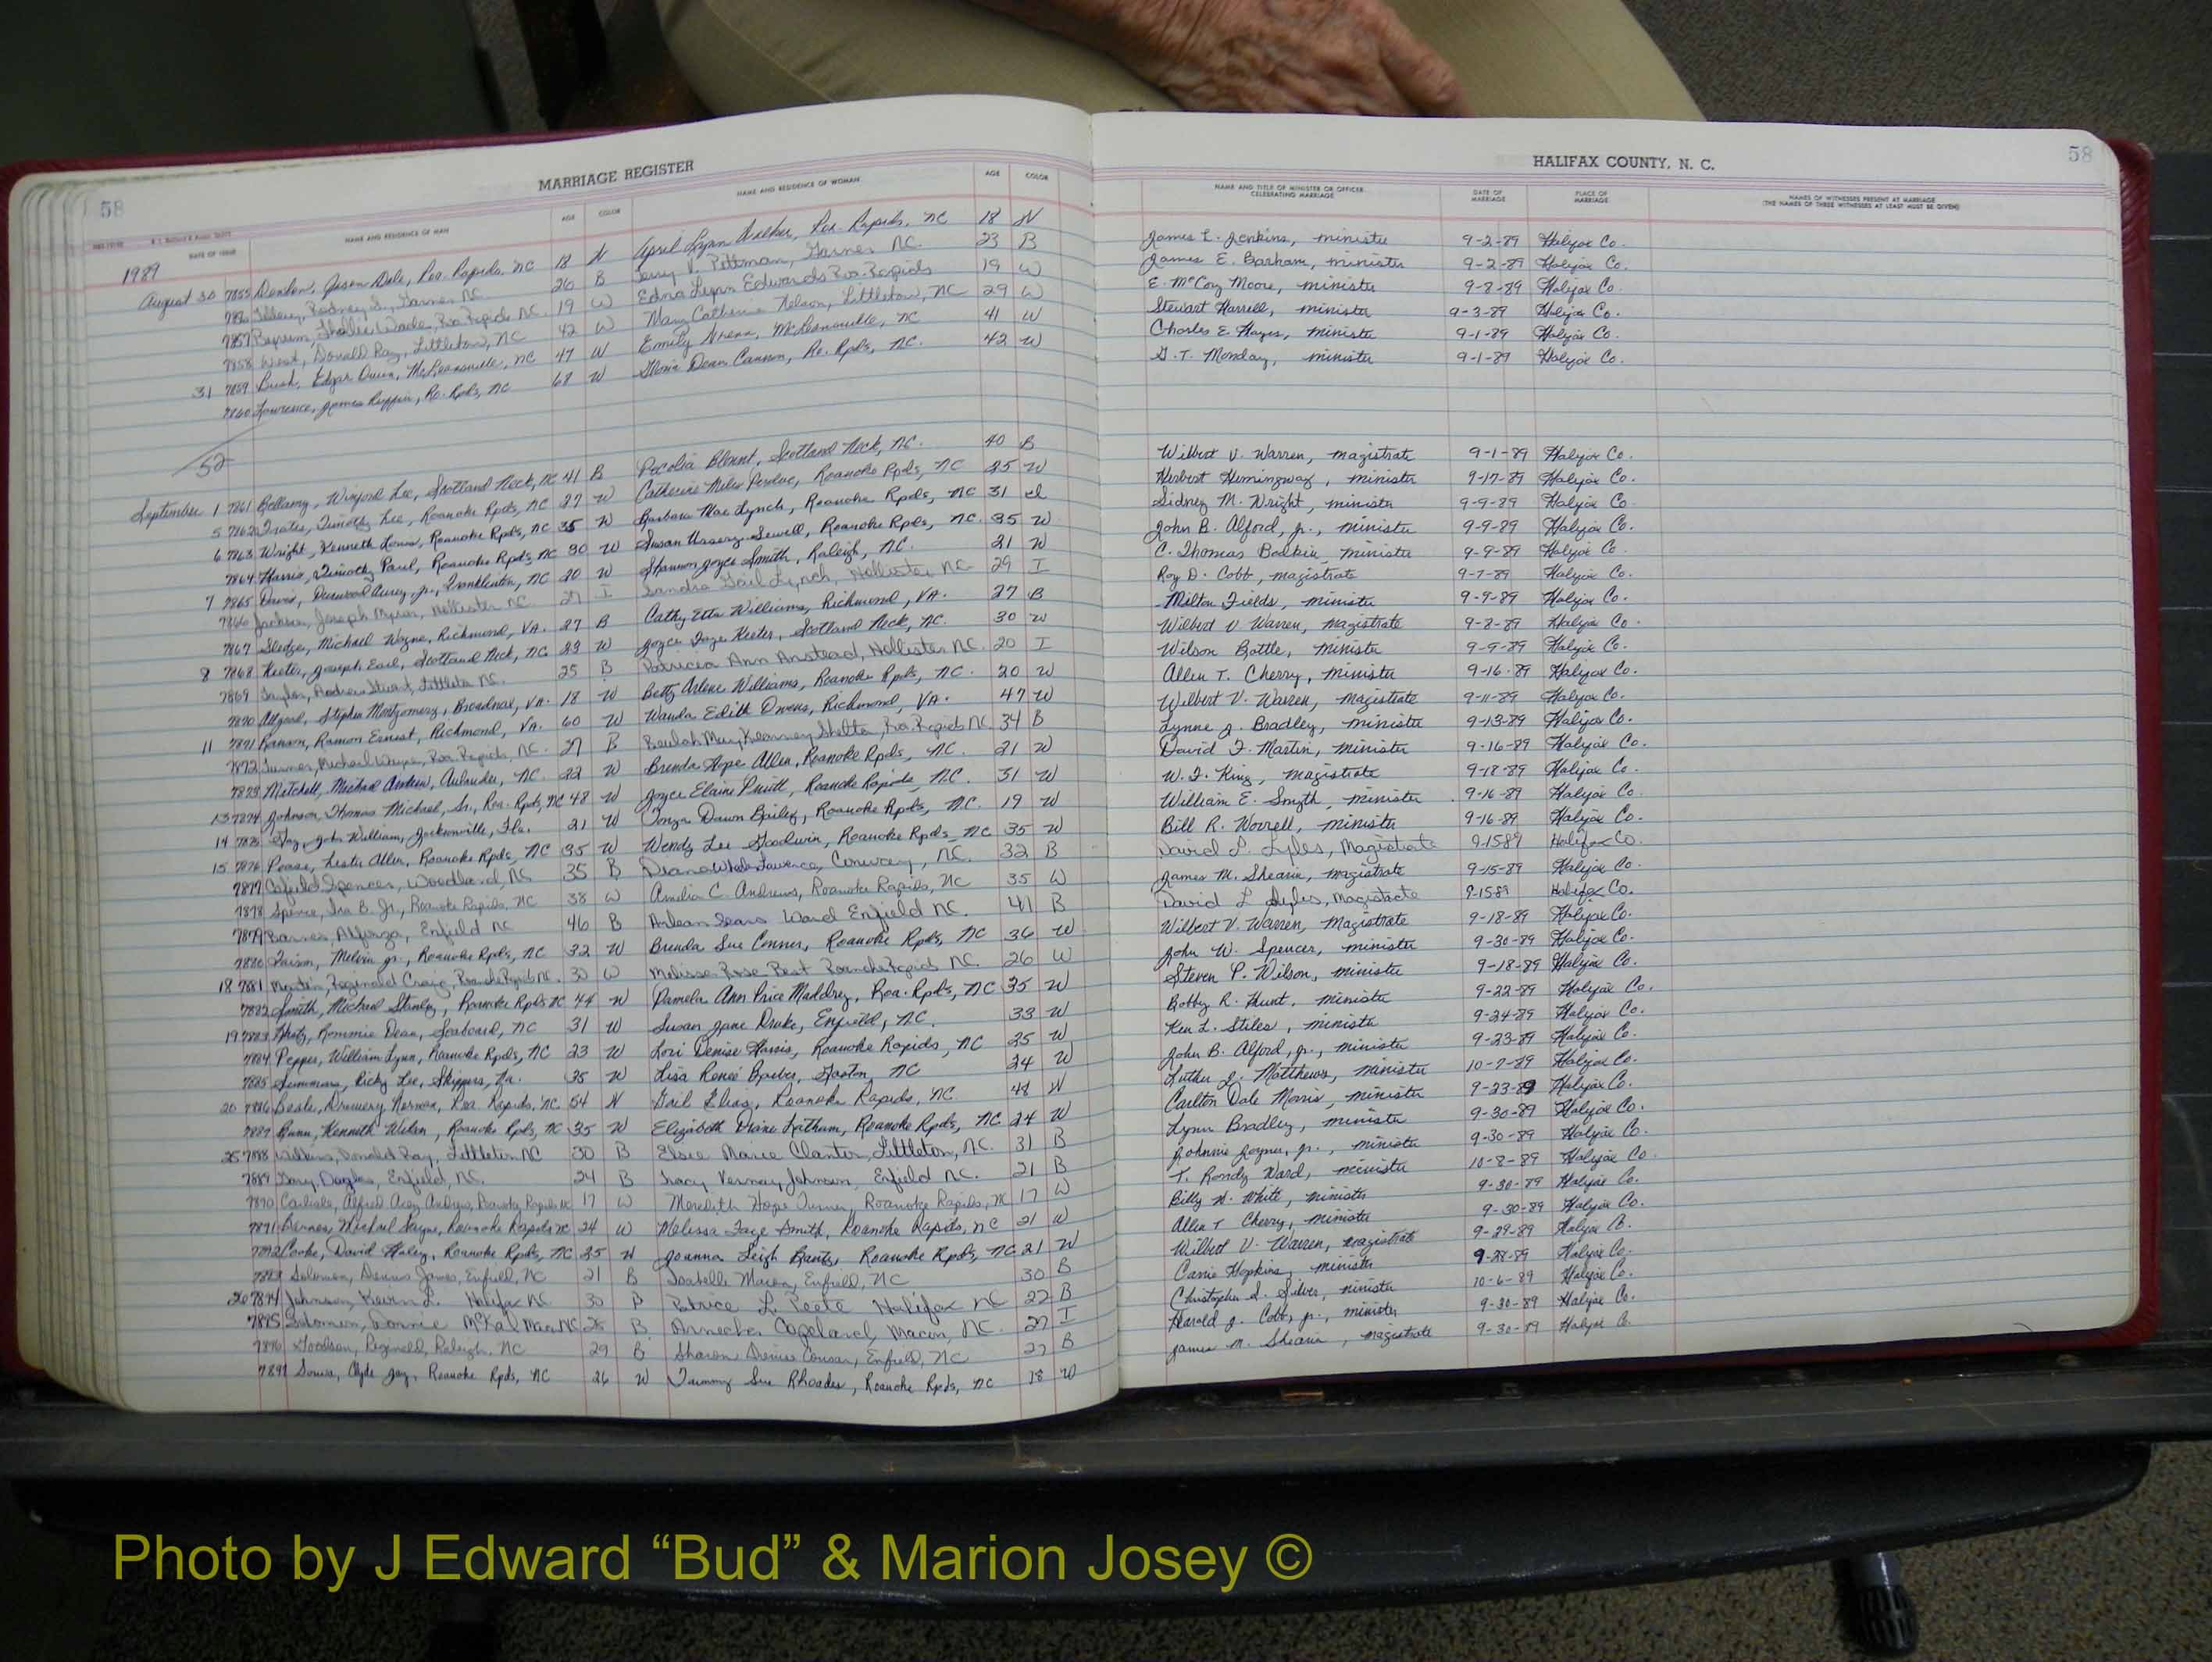 58
MARRIAGE REGISTER
DATE OF ISSUE NAME AND RESIDENCE OF MAN AGE COLOR NAME AND RESIDENCE OF WOMAN AGE COLOR
1989
August 30 7855 Jason Dale, Roa. Rapids, NC 18 W April Lynn Walker, Roa. Rapids, NC 18 W
7856 Rodney Garner NC 26 B V. Pittman, Garner NC. 23 B
7857 Wade, Roa Rapids NC. 19 W Edna Lynn Edwards Roa. Rapids 19 W
7858 West, Donald Ray, Littleton, NC 42 W Mary Catherine Nelson, Littleton, NC 29 W
31 7859 Bush, Edgar Owen, McLeansville, NC 47 W Emily McLeansville, NC 41 W
7860 Lawrence, James Ruffin, Ro. Rpds, NC 68 W Gloria Dean Ro. Rpds, NC. 42 W
52
September 1 7861 Bellamy, Lee, Scotland Neck, NC 41 B Pecolia Blount, Scotland Neck, NC. 40 B
5 7862 Timothy Lee, Roanoke Rpds, NC 27 W Catherine Miles Perdue, Roanoke Rpds, NC 25 W
6 7863 Wright, Kenneth Roanoke Rpds, NC 35 W Barbara Mae Lynch, Roanoke Rpds, NC 31
7864 Harris, Timothy Paul, Roanoke Rpds, NC 30 W Susan Sewell, Roanoke Rpds, NC. 35 W
7 7865 Davis, Durwood Jr., Franklinton, NC 20 W Shannon Joyce Smith, Raleigh, NC. 21 W
7866 Jackson, Joseph Hollister NC. 27 I Sandra Gail Lynch, Hollister NC 29 I
7867 Sledge, Michael Wayne, Richmond, VA. 27 B Cathy Etta Williams, Richmond, VA. 27 B
8 7868 Keeter, Joseph Earl, Scotland Neck, NC 23 W Joyce Faye Keeter, Scotland Neck, NC. 30 W
7869 Taylor, Andrew Stuart, NC. 25 B Patricia Ann Anstead, Hollister NC. 20 I
7870 Allgood, Stephen Montgomery, Broadnax, VA. 18 W Betty Arlene Williams, Roanoke Rpds, NC. 20 W
11 7871 Ramon Ernest, Richmond, VA. 60 W Wanda Edith Owens, Richmond, VA. 47 W
7872 Turner, Michael Wayne, Roa Rapids, NC. 27 B Beulah May Kearney Roa. Rapids NC 34 B
7873 Mitchell, Michael Andrew, Aulander, NC. 22 W Brenda Hope Allen, Roanoke Rpds, NC. 21 W
13 7874 Johnson, Thomas Michael, Sr., Roa. Rpds, NC 48 W Joyce Elaine Pruitt, Roanoke Rapids, NC. 31 W
14 7875 John William, Jacksonville, Fla. 21 W Tonya Dawn Bailey, Roanoke Rpds, NC. 19 W
15 7876 Pease, Lester Allen, Roanoke Rpds, NC 35 W Wendy Lee Goodwin, Roanoke Rpds, NC 35 W
7877 Spencer, Woodland, NC 35 B Diana Lawrence, Conway, NC. 32 B
7878 Spence, Ira B. Jr., Roanoke Rapids, NC 38 W Amelia C. Andrews, Roanoke Rapids, NC 35 W
7879 Barnes, Alfonza, Enfield NC 46 B Arlean Sears Ward Enfield NC. 41 B
7880 Faison, Melvin Jr., Roanoke Rpds, NC 32 W Brenda Sue Conner, Roanoke Rpds, NC 36 W
18 7881 Martin, Reginald Craig, Roanoke Rapids NC. 30 W Melissa Rose Best Roanoke Rapids NC. 26 W
7882 Smith, Michael Stanley, Roanoke Rpds NC 44 W Pamela Ann Price Maddrey, Roa. Rpds, NC 35 W
19 7883 Rommie Dean, Seaboard, NC 31 W Susan Jane Drake, Enfield, NC. 33 W
7884 Pepper, William Lynn, Roanoke Rpds, NC 23 W Lori Denise Harris, Roanoke Rapids, NC 25 W
7885 Ricky Lee, Skippers, Va. 35 W Lisa Reneé Gaston, NC 24 W
20 7886 Drewery Norman, Roa. Rapids, NC 54 W Gail Elias, Roanoke Rapids, NC 48 W
7887 Bunn, Kenneth Roanoke Rpds, NC 35 W Elizabeth Diane Latham, Roanoke Rpds, NC 24 W
25 7888 Wilkins, Donald Ray, Littleton NC 30 B Elsie Marie Clanton, Littleton, NC. 31 B
7889 Gary, Enfield, NC. 24 B Tracy Johnson, Enfield NC. 21 B
7890 Carlisle, Alfred Roanoke Rapids NC 17 W Meredith Hope Turner, Roanoke Rapids, NC 17 W
7891 Michael Roanoke Rapids NC 24 W Melissa Faye Smith, Roanoke Rapids, NC 21 W
7892 Cooke, David Haley, Roanoke Rpds, NC 25 W Joanna Leigh Roanoke Rpds, NC 21 W
7893 Solomon, Dennis James, Enfield, NC 21 B Isabelle Enfield, NC 30 B
7894 Johnson, Kevin L. Halifax NC 30 B Patrice L. Peete Halifax NC 22 B
7895 Solomon, Macon NC B Copeland, Macon, NC. 27 I
7896 Goodson, Reginald, Raleigh, NC 29 B Sharon Denise Enfield, NC 27 B
7897 Clyde Jay, Roanoke Rpds, NC 26 W Tammy Sue Rhoades, Roanoke Rpds, NC 18 W
HALIFAX COUNTY, N. C. 58
NAME AND TITLE OF MINISTER OR OFFICER CELEBRATING MARRIAGE DATE OF MARRIAGE PLACE OF MARRIAGE NAMES OF WITNESSES PRESENT AT MARRIAGE
(THE NAMES OF THREE WITNESSES AT LEAST MUST BE GIVEN)
James L. Jenkins, minister 9-2-89 Halifax Co.
James E. Barham, minister 9-2-89 Halifax Co.
E. McCoy Moore, minister 9-8-89 Halifax Co.
Stewart Harrell, minister 9-3-89 Halifax Co.
Charles E. Hayes, minister 9-1-89 Halifax Co.
G. T. Monday, minister 9-1-89 Halifax Co.
Wilbert V. Warren, magistrate 9-1-89 Halifax Co.
Herbert Hemingway, minister 9-17-89 Halifax Co.
Sidney M. Wright, minister 9-9-89 Halifax Co.
John B. Alford, Jr., minister 9-9-89 Halifax Co.
C. Thomas minister 9-9-89 Halifax Co.
Roy D. Cobb, magistrate 9-7-89 Halifax Co.
Milton Fields, minister 9-9-89 Halifax Co.
Wilbert V Warren, magistrate 9-8-89 Halifax Co.
Wilson Battle, minister 9-9-89 Halifax Co.
Allen T. Cherry, minister 9-16-89 Halifax Co.
Wilbert V. Warren, magistrate 9-11-89 Halifax Co.
Lynne J. Bradley, minister 9-13-89 Halifax Co.
David F. Martin, minister 9-16-89 Halifax Co.
W. F. King, magistrate 9-18-89 Halifax Co.
William E. Smyth, minister 9-16-89 Halifax Co.
Bill R. Worrell, minister 9-16-89 Halifax Co.
David L. Lyles, Magistrate 9-1589 Halifax Co.
James M. Shearin, magistrate 9-15-89 Halifax Co.
David L Lyles, Magistrate 9-1589 Halifax Co.
Wilbert V. Warren, Magistrate 9-18-89 Halifax Co.
John W. Spencer, minister 9-30-89 Halifax Co.
Steven P. Wilson, minister 9-18-89 Halifax Co.
Bobby R. Hunt, minister 9-22-89 Halifax Co.
Ken L. Stiles, minister 9-24-89 Halifax Co.
John B. Alford, Jr., minister 9-23-89 Halifax Co.
Luther J. Matthews, minister 10-7-89 Halifax Co.
Carlton Dale Morris, minister 9-23-89 Halifax Co.
Lynn Bradley, minister 9-30-89 Halifax Co.
Johnnie Joyner, Jr., minister 9-30-89 Halifax Co.
T. Randy Ward, minister 10-8-89 Halifax Co.
Billy N. White, minister 9-30-89 Halifax Co.
Allen T Cherry, minister 9-30-89 Halifax Co.
Wilbert V. Warren, magistrate 9-29-89 Halifax Co.
Carrie Hopkins, minister 9-28-89 Halifax Co.
Christopher S. Silver, minister 10-6-89 Halifax Co.
Harold J. Cobb, Jr., minister 9-30-89 Halifax Co.
James M. Shearin, magistrate 9-30-89 Halifax Co.
Photo by J Edward “Bud” & Marion Josey ©